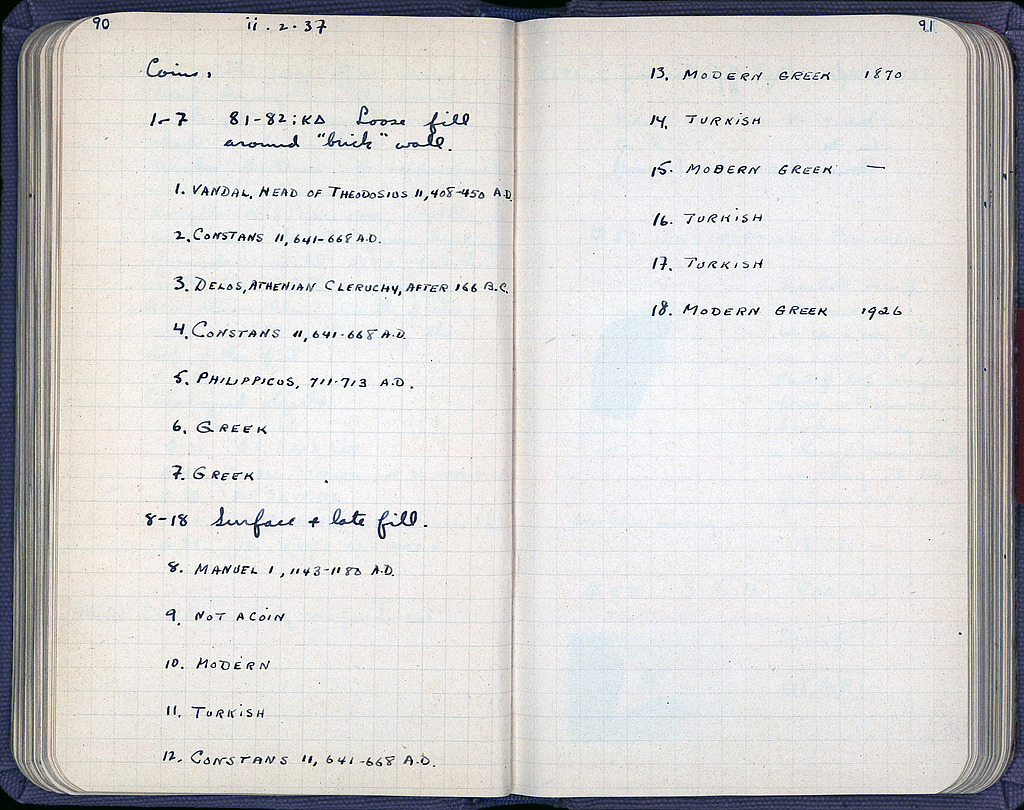 90
ii . 2 . 37
Coins.
1-7 81-82:ΚΔ Loose fill
around "brick" wall.
1. VANDAL, HEAD OF THEODOSIUS II, 408-450 A.D.
2. CONSTANS II, 641-668 A.D.
3. DELOS, ATHENIAN CLERUCHY, AFTER 166 B.C.
4. CONSTANS II, 641-668 A.D.
5. PHILIPPICUS, 711-713 A.D.
6. GREEK
7. GREEK
8-18 Surface + late fill.
8. MANUEL I, 1143-1180 A.D.
9. NOT A COIN
10. MODERN
11. TURKISH
12. CONSTANS II, 641-668 A.D.
91
13. MODERN GREEK 1870
14. TURKISH
15. MODERN GREEK —
16. TURKISH
17. TURKISH
18. MODERN GREEK 1926